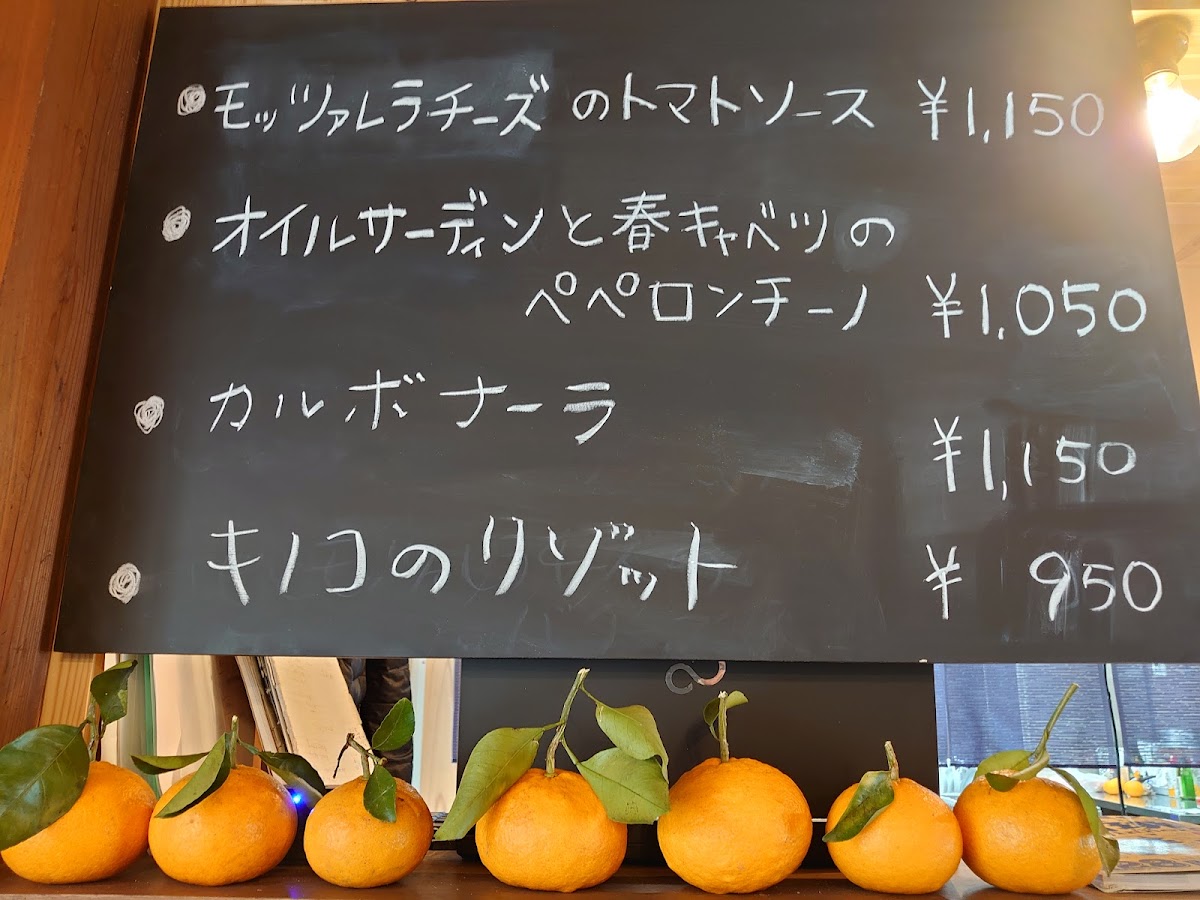 モッツァレラチーズのトマトソース ¥1,150
オイルサーディンと春キャベツの
ペペロンチーノ ¥1,050
カルボナーラ ¥1,150
キノコのリゾット ¥950